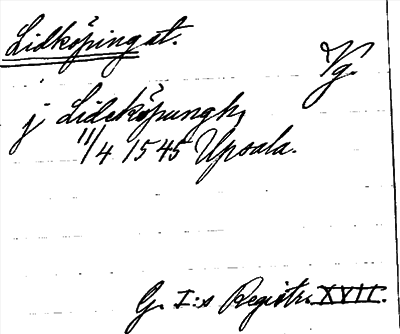 Lidköping st.
Vg.
j Lideköpungh,
11/4 1545 Upsala.
G. I:s Registr. XVII.